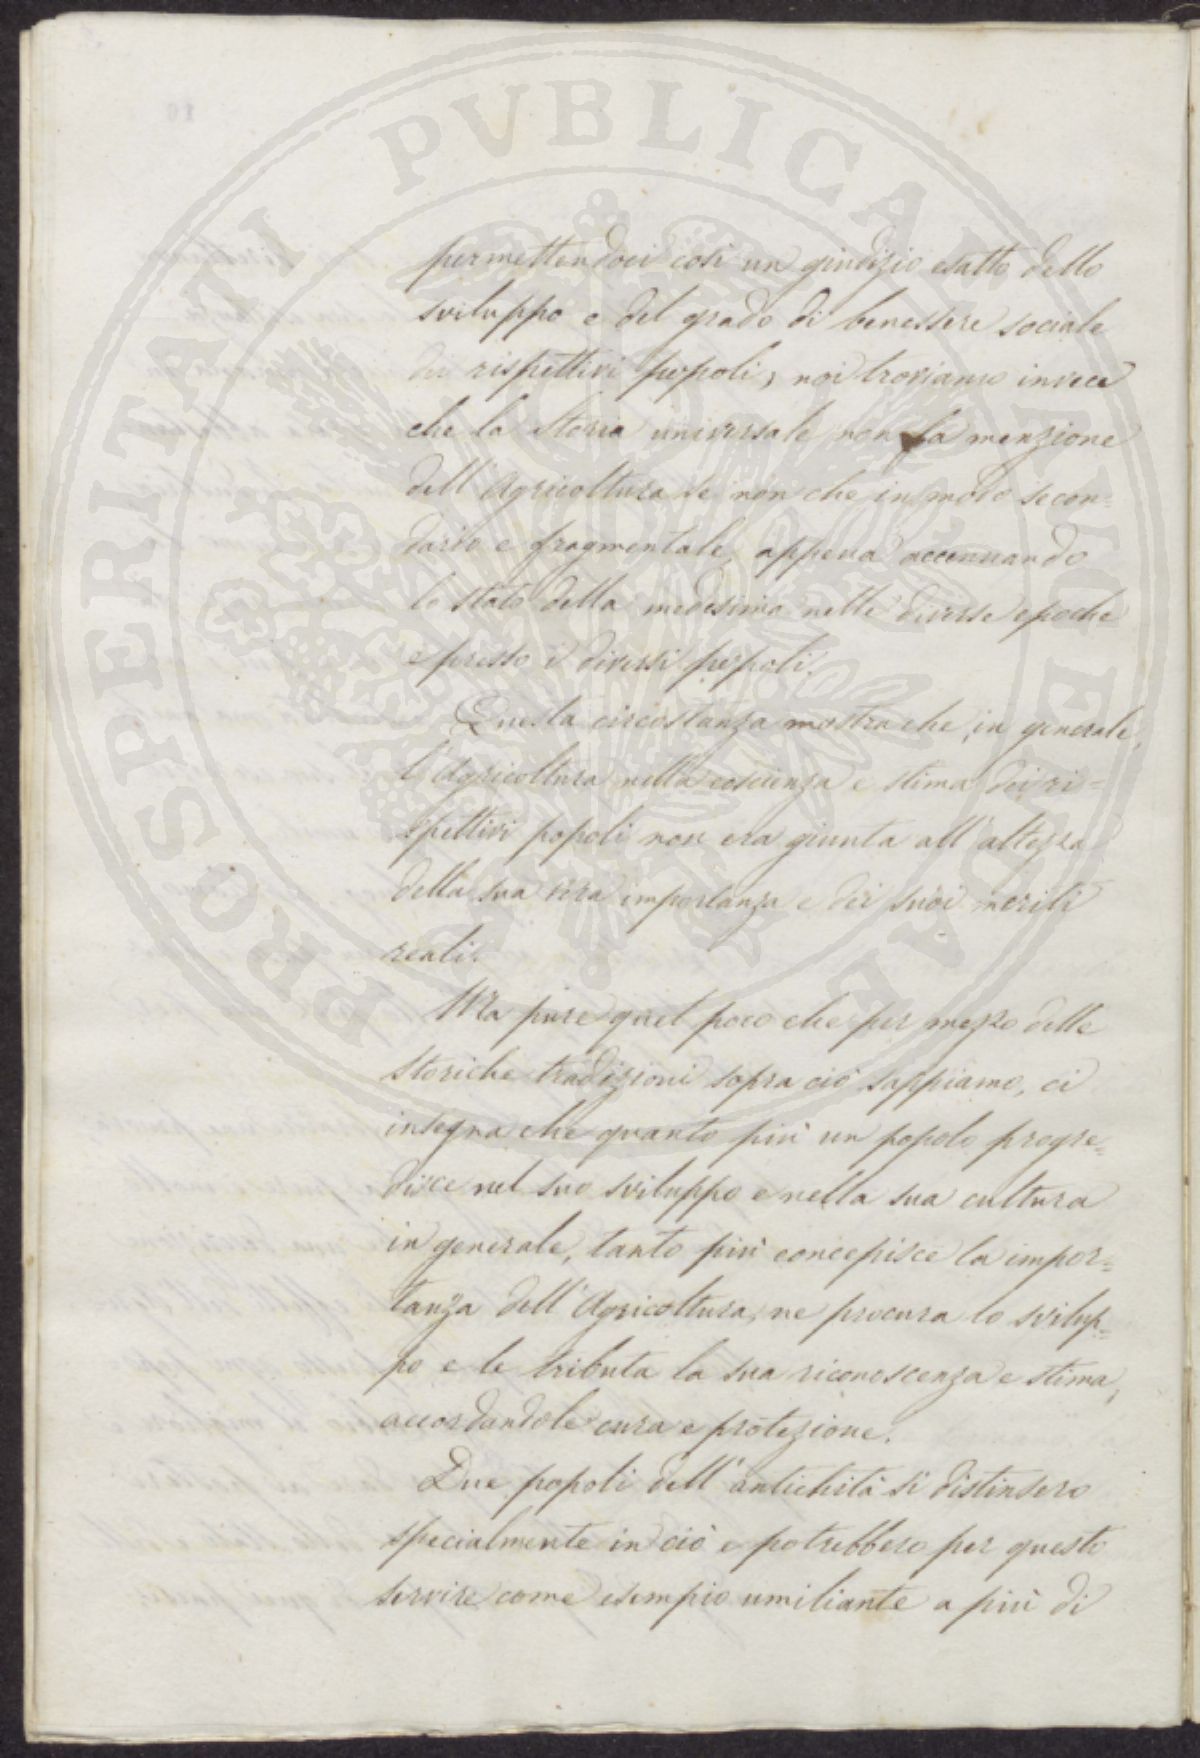 PROSPERITATI PVBLICAE AVGENDAE
permettendoci così un giudizio esatto dello
sviluppo e del grado di benessere sociale
dei rispettivi popoli, noi troviamo invece
che la storia universale non fa menzione
dell'Agricoltura se non che in modo secon=
dario e fragmentale, appena accennando
lo stato della medesima nelle diverse epoche
e presso i diversi popoli.
Questa circostanza mostra che, in generale,
l'Agricoltura nella coscienza e stima dei ri=
spettivi popoli non era giunta all'altezza
della sua vera importanza e dei suoi meriti
reali.
Ma pure quel poco che per mezzo delle
storiche tradizioni sopra ciò sappiamo, ci
insegna che quanto più un popolo progre=
disce nel suo sviluppo e nella sua cultura
in generale, tanto più concepisce la impor=
tanza dell'Agricoltura, ne procura lo svilup=
po e le tributa la sua riconoscenza e stima,
accordandole cura e protezione.
Due popoli dell'antichità si distinsero
specialmente in ciò e potrebbero per questo
servire come esempio umiliante a più di